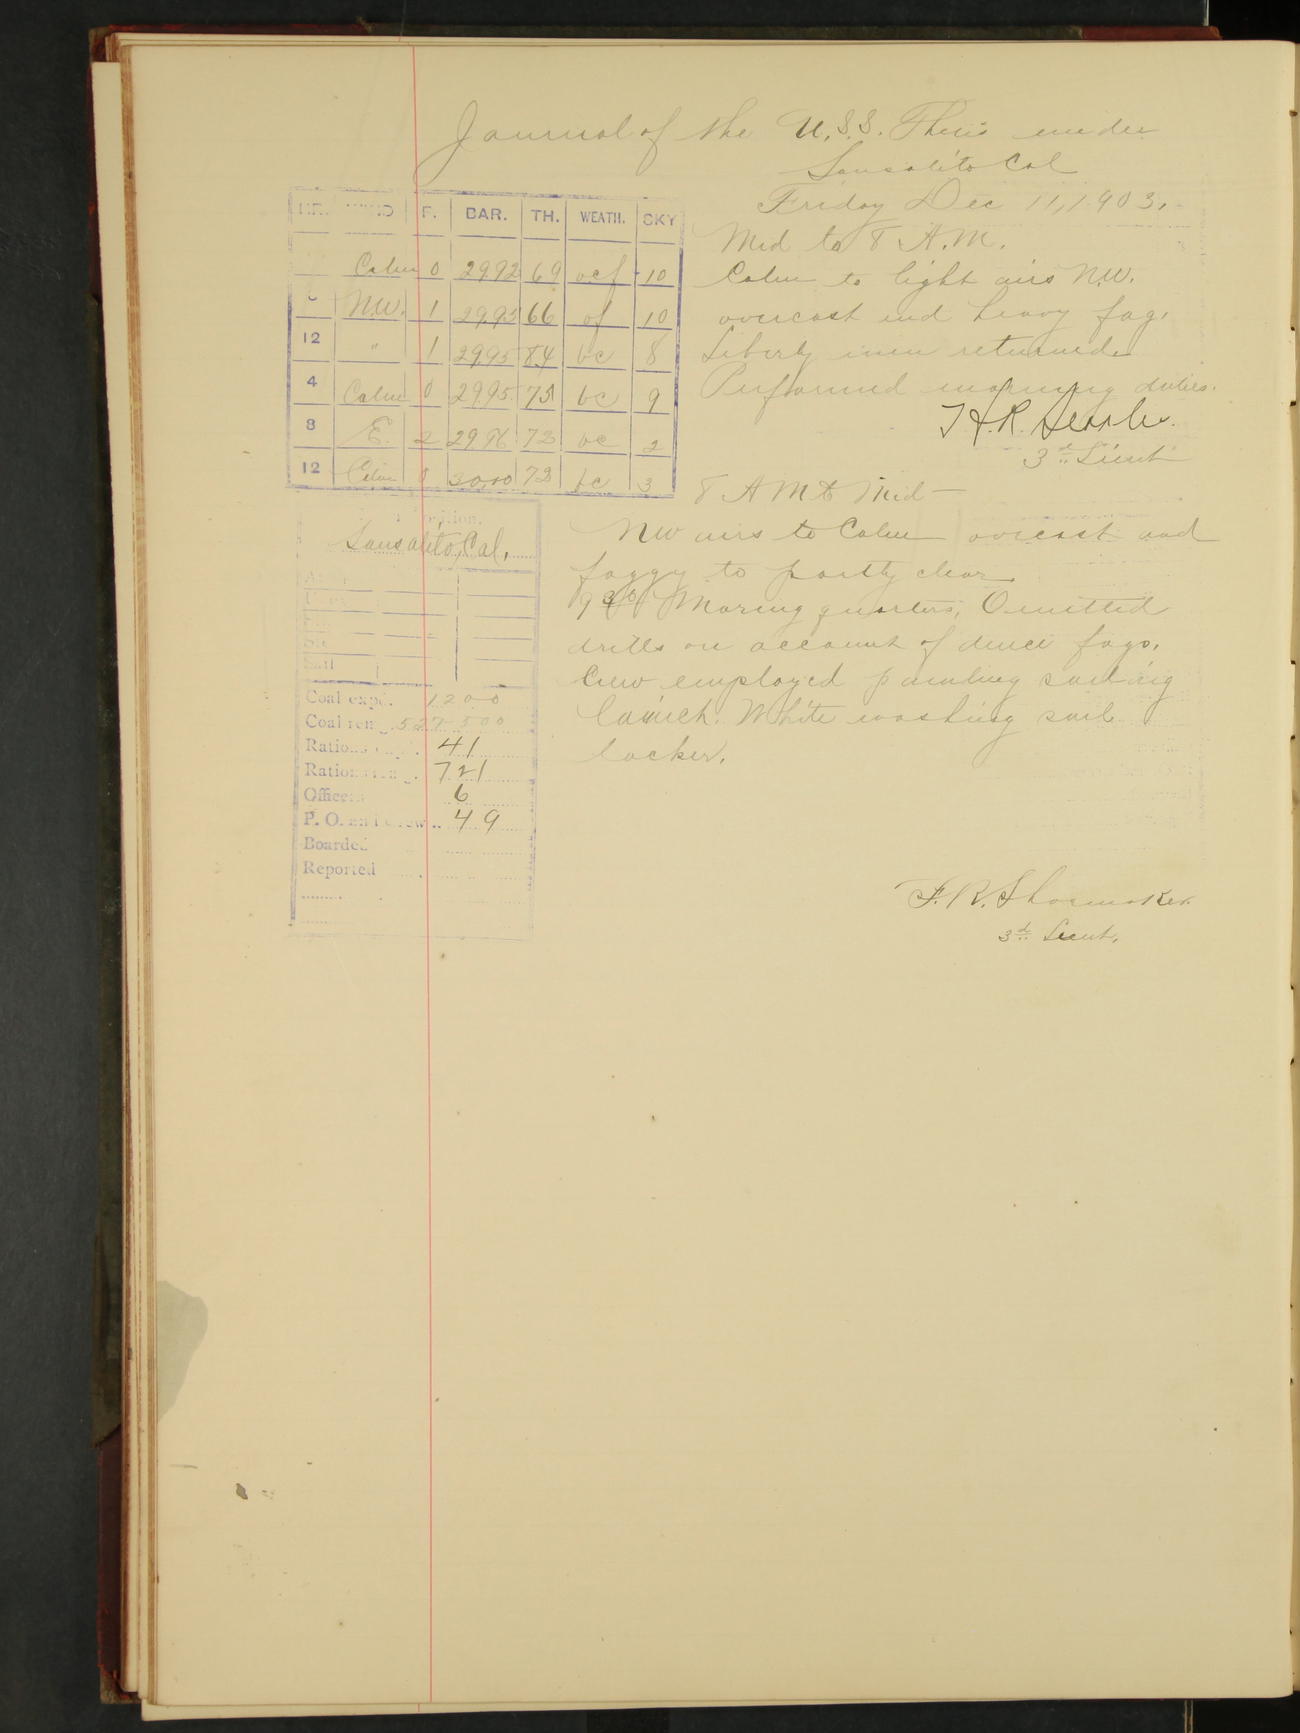 Journal of the U.S.S. Thetis
Sausalito Cal
Friday Dec 11, 1903.
HR. WIND F. BAR. TH. WEATH. SKY
Calm 0 2992 69 ocf 10
8 N.W. 1 29.95 66 of 10
12 " 1 29.95 84 bc 8
4 Calm 0 29.95 75 bc 9
8 E. 2 29.98 73 bc 2
12 Calm 0 30.00 73 bc 3
Mid to 8 A.M.
Calm to light airs N.W.
overcast and heavy fog.
Liberty men returned.
Performed morning duties.
3d Lieut
8 AM to Mid—
NW airs to Calm overcast and
foggy to partly clear
9 30 Morning quarters. Omitted
drills on account of dence fogs.
Crew employed painting sailing
launch. White washing sail
locker.
F. R. Shoemaker
3d Lieut.
Position.
Sausalito, Cal.
Sail
Coal expd. 1200
Coal rem'g. 527 500
Rations 41
Rations 721
Officers 6
P. O. and crew.. 49
Boarded
Reported